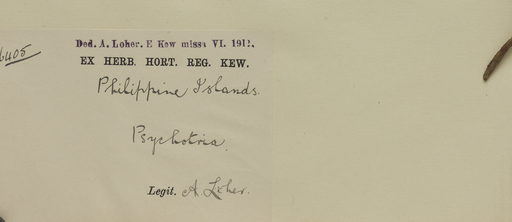 6405
Ded. A. Loher. E Kew missa VI. 1912.
EX HERB. HORT. REG. KEW.
Philippine Islands.
Psychotria.
Legit. A. Loher.